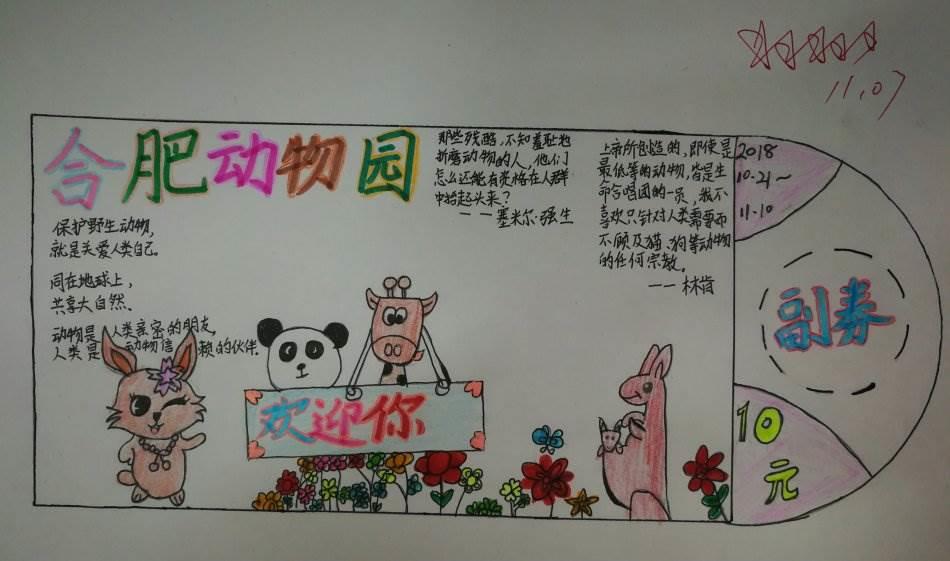 合肥动物园
保护野生动物,
就是关爱人类自己。
同在地球上,
共享大自然.
动物是人类亲密的朋友,
人类是动物信赖的伙伴.
那些残酷,不知羞耻地
折磨动物的人,他们
怎么还能有资格在人群
中抬起头来?
——塞米尔·强生
上帝所创造的,即使是
最低等的动物,皆是生
命合唱团的一员,我不
喜欢只针对人类需要而
不顾及猫、狗等动物
的任何宗教。
——林肯
欢迎你
2018
10.21~
11.10
副券
10
元
11.07